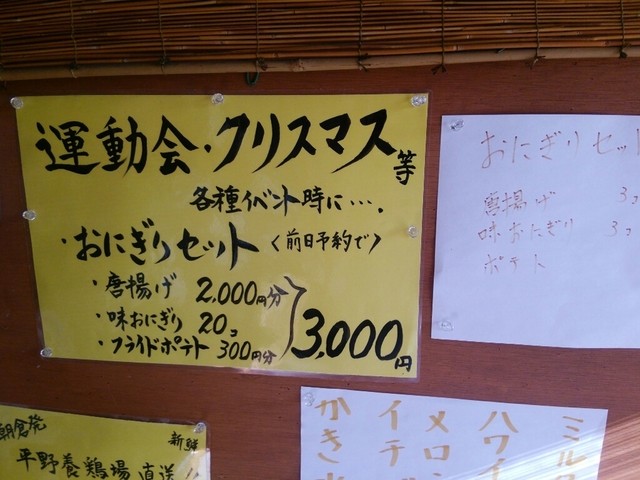 運動会・クリスマス等
各種イベント時に・・・・
・おにぎりセット〈前日予約で〉
・唐揚げ 2,000円分
・味おにぎり 20コ
・フライドポテト 300円分
3,000円
おにぎりセット
唐揚げ 3コ
味おにぎり 3コ
ポテト
朝倉発
新鮮
平野養鶏場直送
ミルク
ハワイ
メロン
イチゴ
かき氷